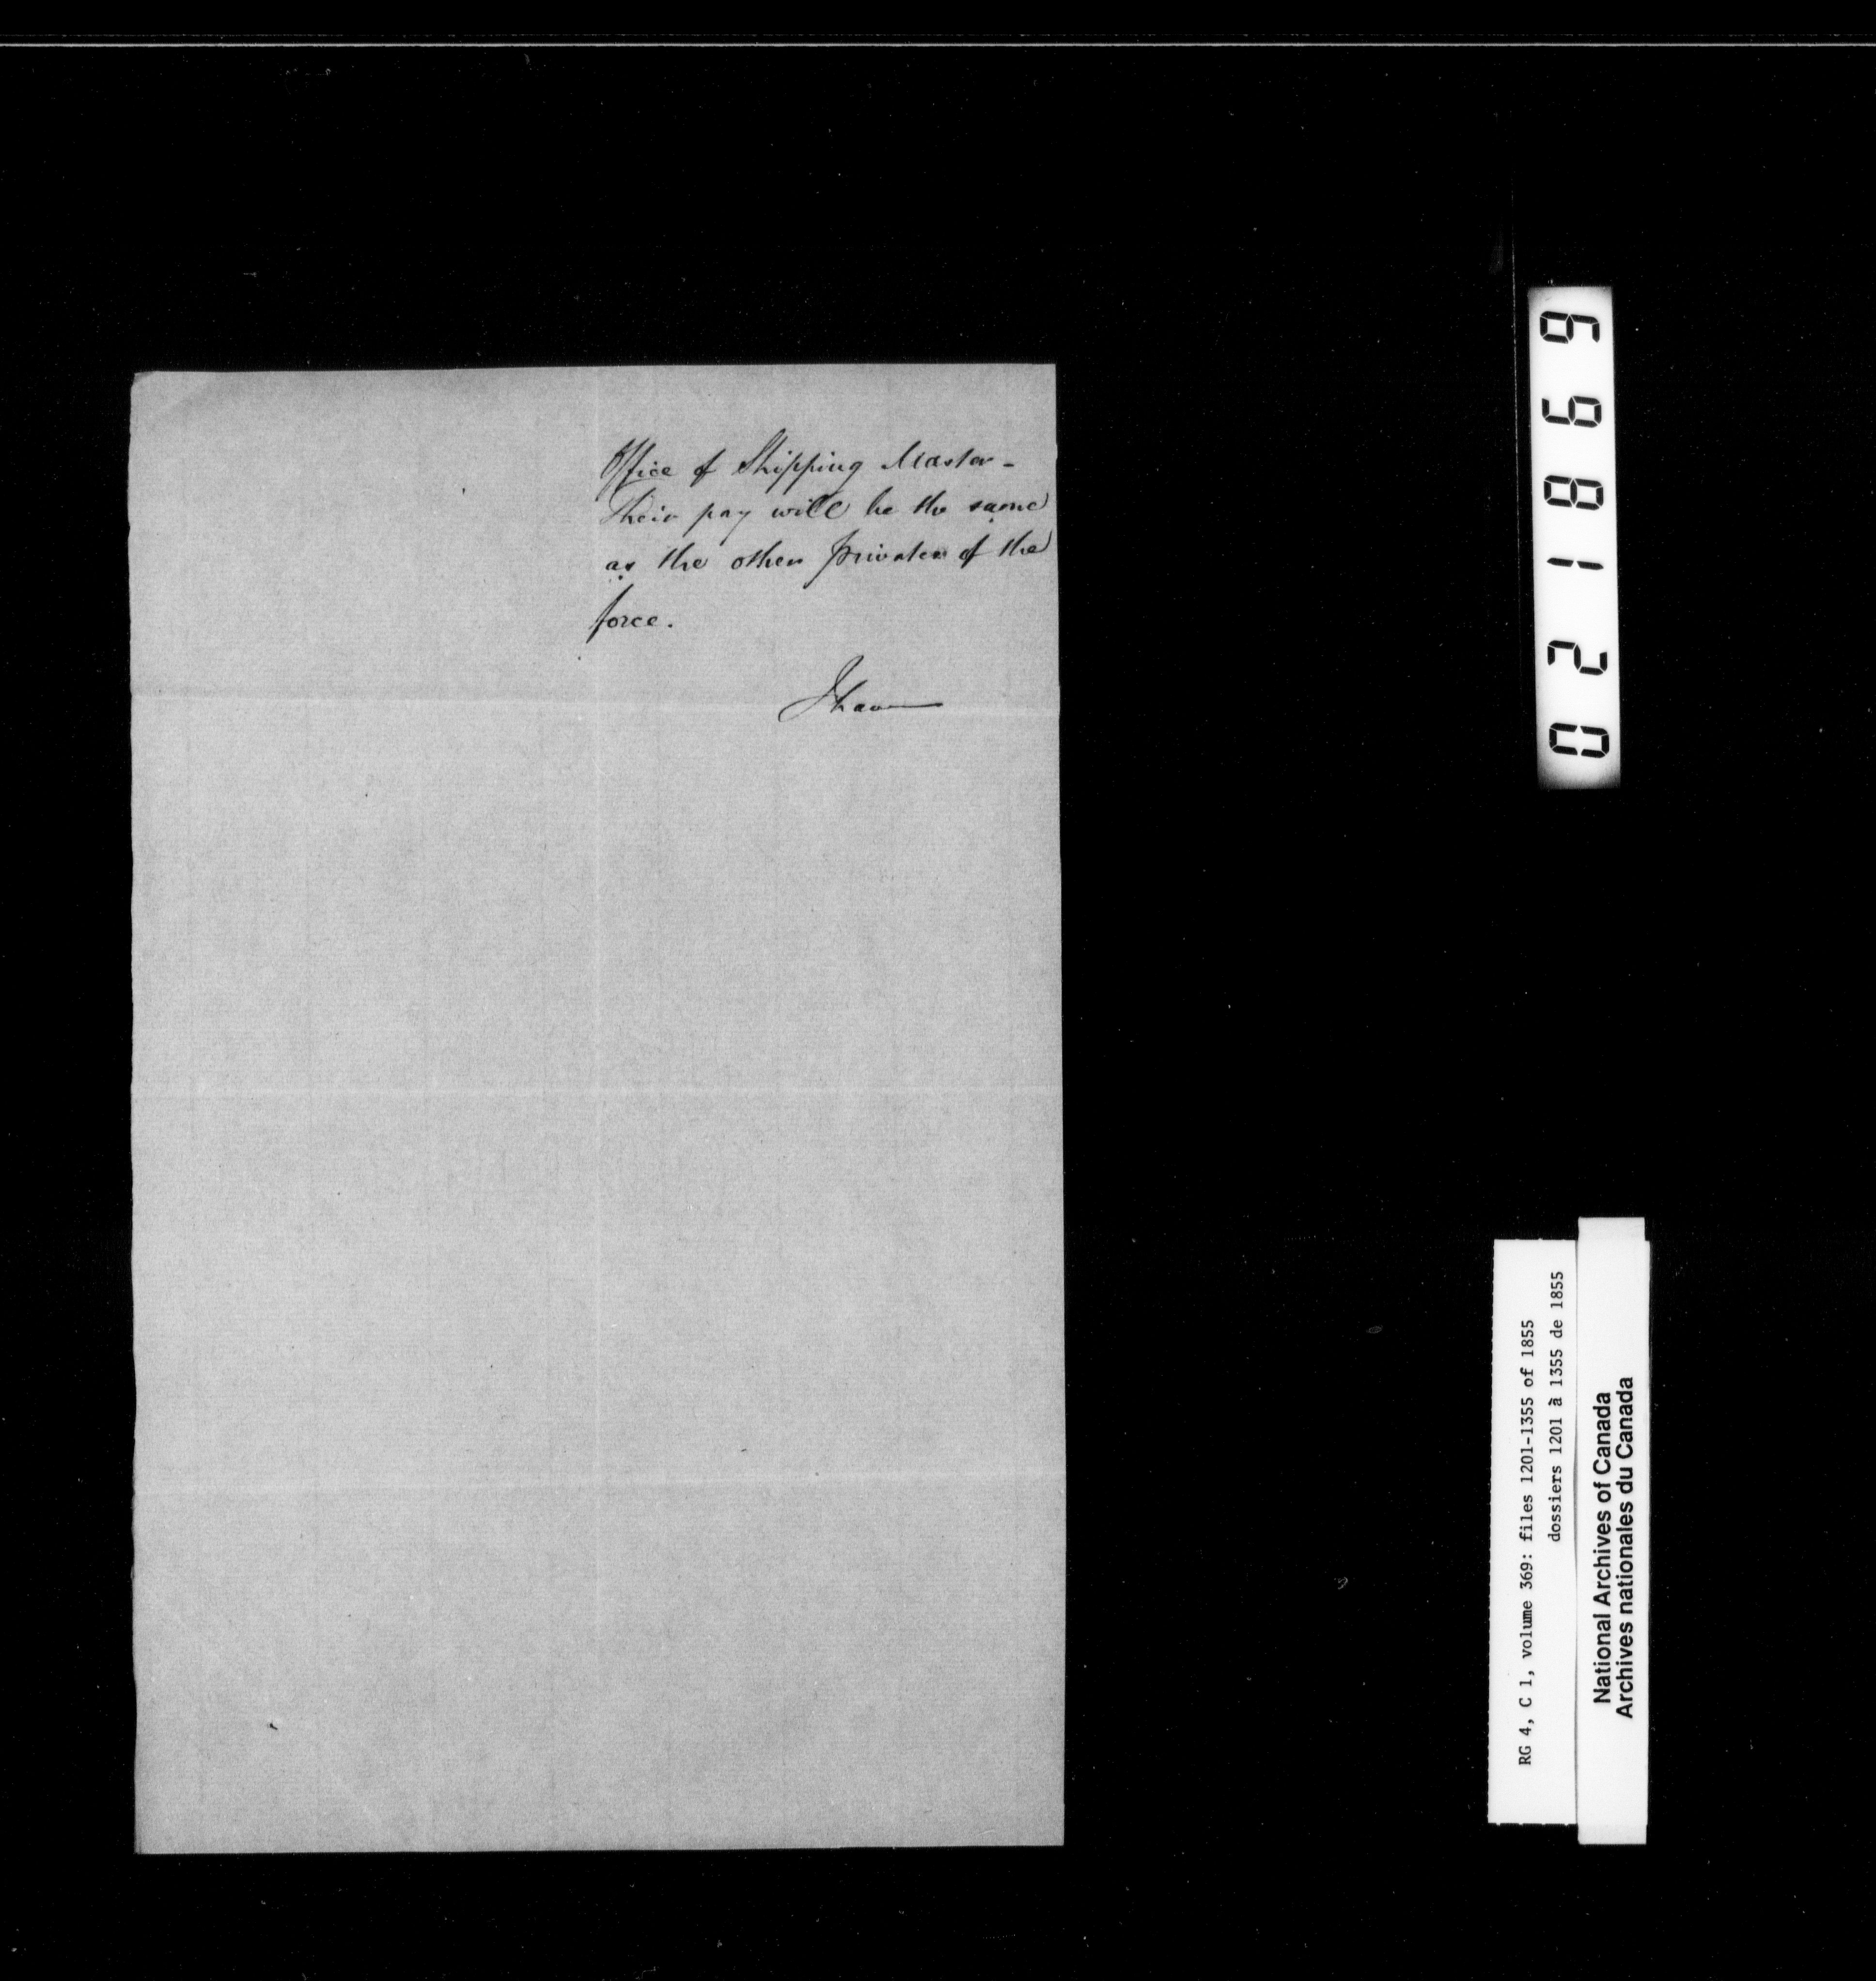 Office of Shipping Master -
Their pay will be the same
as the other privates of the
force.
021869
RG 4, C 1, volume 369: files 1201-1355 of 1855
dossiers 1201 à 1355 de 1855
National Archives of Canada
Archives nationales du Canada